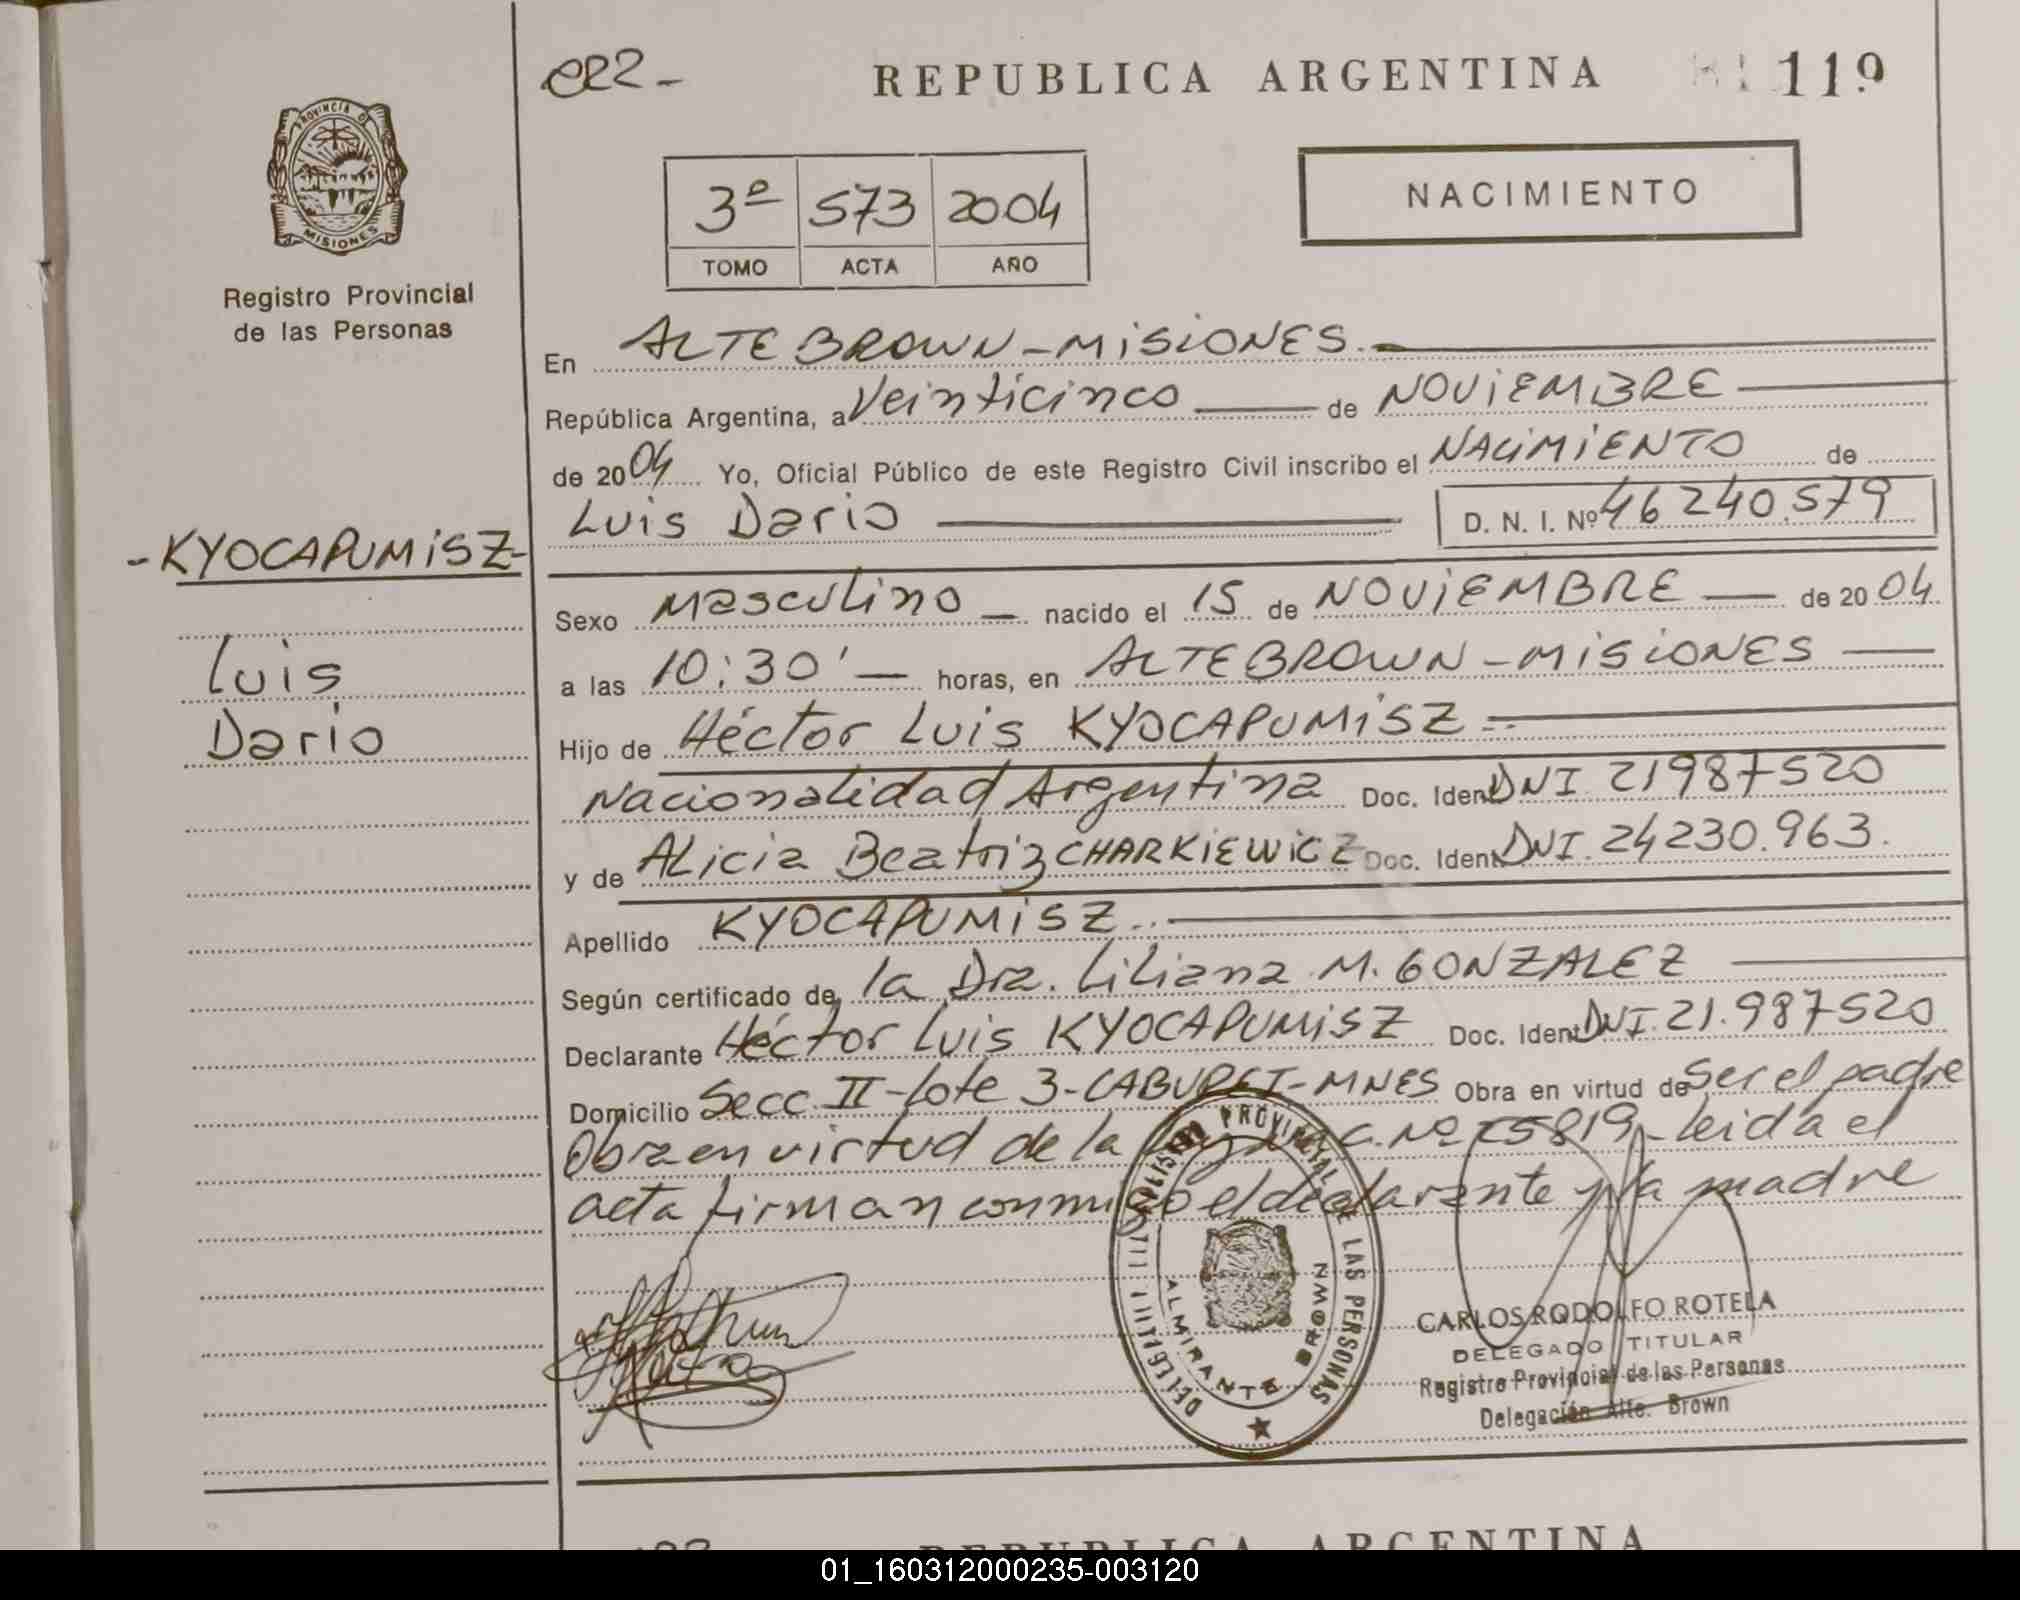 CR2-
REPUBLICA ARGENTINA
119
PROVINCIA DE
MISIONES
Registro Provincial
de las Personas
3º 573 2004
TOMO ACTA AÑO
NACIMIENTO
En ALTE BROWN-MISIONES.
República Argentina, a Veinticinco de NOVIEMBRE
de 2004 Yo, Oficial Público de este Registro Civil inscribo el NACIMIENTO de
Luis Dario
D. N. I. Nº 46240.579
-KYOCAPUMISZ-
Luis
Dario
Sexo Masculino nacido el 15 de NOVIEMBRE de 2004
a las 10:30' horas, en ALTE BROWN-MISIONES
Hijo de Héctor Luis KYOCAPUMISZ
Nacionalidad Argentina Doc. Ident. DNI. 21987520
y de Alicia Beatriz CHARKIEWICZ Doc. Ident. DNI. 24230.963.
Apellido KYOCAPUMISZ.
Según certificado de la Dra. Liliana M. GONZALEZ
Declarante Héctor Luis KYOCAPUMISZ Doc. Ident. DNI. 21.987520
Domicilio Secc. II-Lote 3-CABUREI-MNES Obra en virtud de Ser el padre
Obra en virtud de la Ley Nac. Nº 25819-leida el
acta firman conmigo el declarante y la madre
REGISTRO PROVINCIAL DE LAS PERSONAS
ALMIRANTE BROWN
CARLOS RODOLFO ROTELA
DELEGADO TITULAR
Registro Provincial de las Personas
Delegación Alte. Brown
REPUBLICA ARGENTINA
01_160312000235-003120